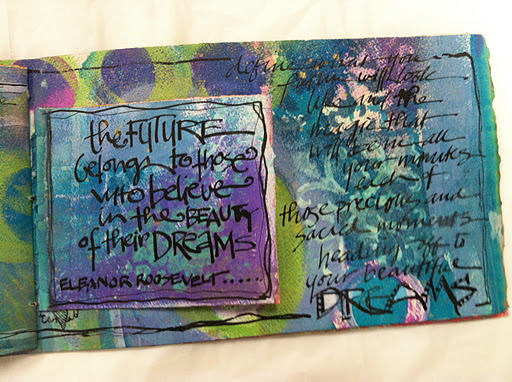 the FUTURE
belongs to those
who believe
in the BEAUTY
of their DREAMS
ELEANOR ROOSEVELT......
define what your
future will look
like and the
magic that
will be in all
your minutes
each of
those precious and
sacred moments
heading off to
your beautiful
DREAMS